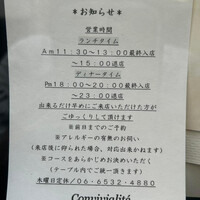 ＊お知らせ＊
営業時間
ランチタイム
Am11：30～13：00最終入店
～15：00退店
ディナータイム
Pm18：00～20：00最終入店
～23：00退店
出来るだけ早めにご来店いただけた方が
ごゆっくりして頂けます
※前日までのご予約
※アレルギーの有無のお伺い
（来店後に仰られた場合、対応出来かねます）
※コースをあらかじめお決めいただく
（テーブル内でご統一頂きます）
木曜日定休／06-6532-4880
Convivialité